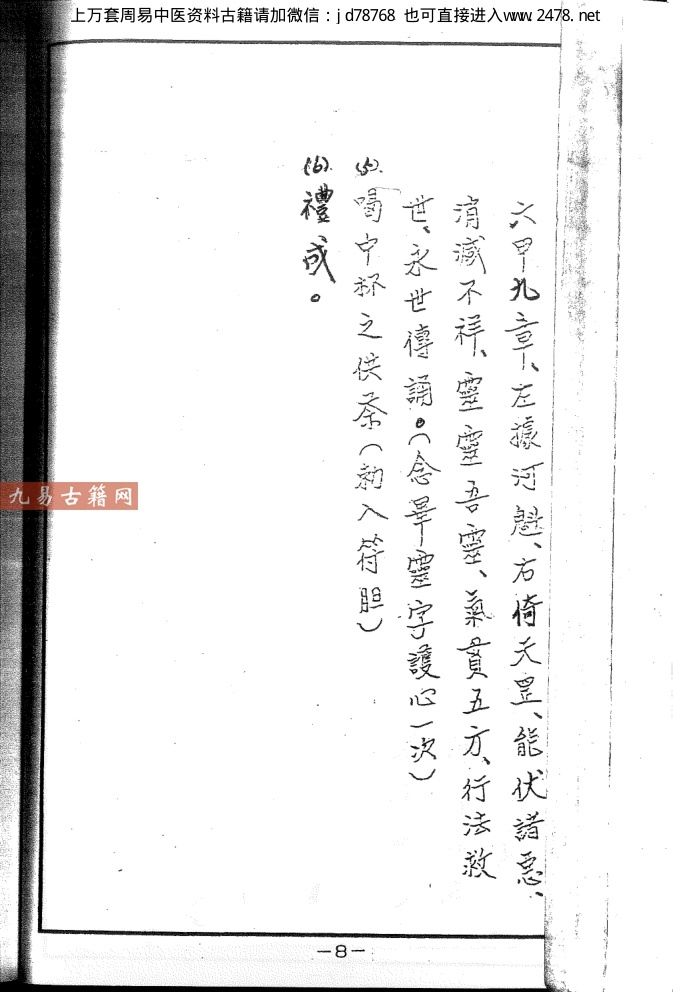 上万套周易中医资料古籍请加微信：jd78768 也可直接进入www.2478.net
六甲九章、左據河魁、右倚天罡、能伏諸惡、
消滅不祥、靈靈吾靈、氣貫五方、行法救
世、永世傳誦。(念畢靈字護心一次)
(5).喝中杯之供茶(勅入符胆)
(6).禮成。
九易古籍网
-8-